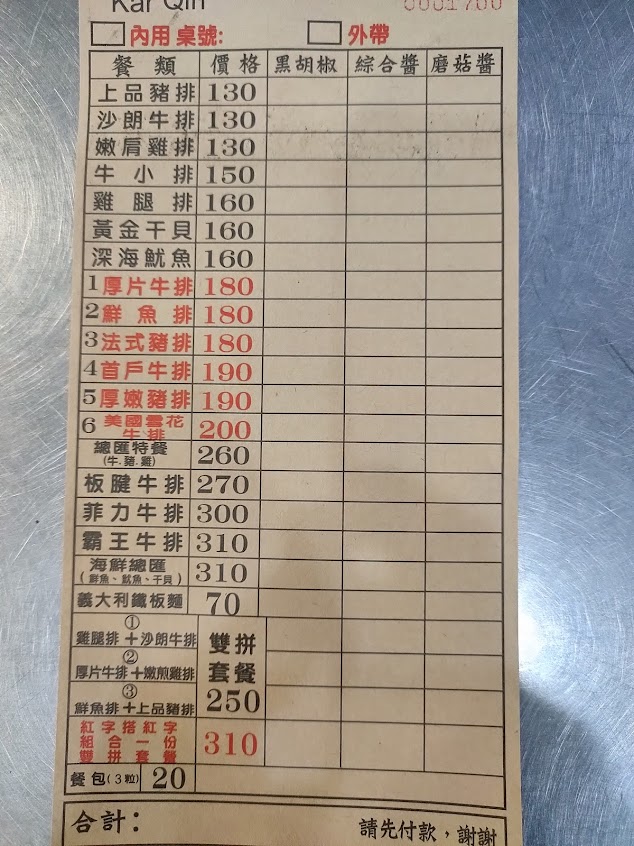 Kar Qin
0001700
內用 桌號: 外帶
餐類 價格 黑胡椒 綜合醬 磨菇醬
上品豬排 130
沙朗牛排 130
嫩肩雞排 130
牛小排 150
雞腿排 160
黃金干貝 160
深海魷魚 160
1 厚片牛排 180
2 鮮魚排 180
3 法式豬排 180
4 首戶牛排 190
5 厚嫩豬排 190
6 美國雪花牛排 200
總匯特餐 260
(牛.豬.雞)
板腱牛排 270
菲力牛排 300
霸王牛排 310
海鮮總匯 310
(鮮魚、魷魚、干貝)
義大利鐵板麵 70
①
雞腿排+沙朗牛排
②
厚片牛排+嫩煎雞排
③
鮮魚排+上品豬排
雙拼
套餐
250
紅字搭紅字
組合一份
雙拼套餐
310
餐包(3粒) 20
合計:
請先付款,謝謝